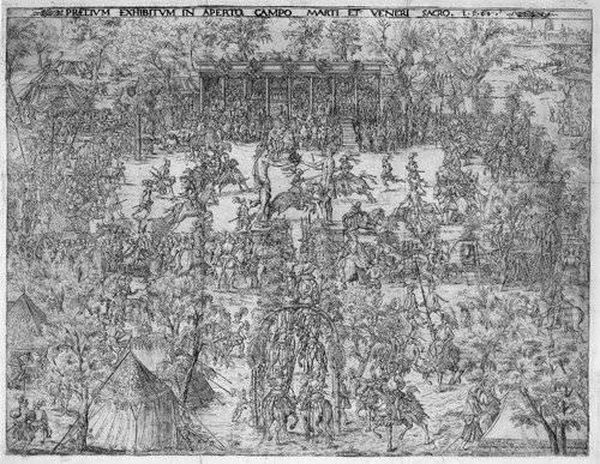 PRELIVM EXHIBITVM IN APERTO CAMPO MARTI ET VENERI SACRO.